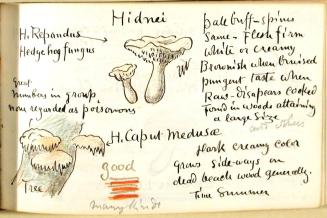 Hidnei
H. Repandus
Hedgehog fungus
Great
numbers in group
non regarded as poisonous
pale buff - spines
Same - Flesh firm
white or creamy
Brownish when bruised
pungent taste when
Raw - disapears cooked
Found in woods attaining
a large size
and others
H. Caput Medusæ
flesh creamy color
grows side-ways on
dead beach wood generally.
Time Summer
good
Tree
many kinds